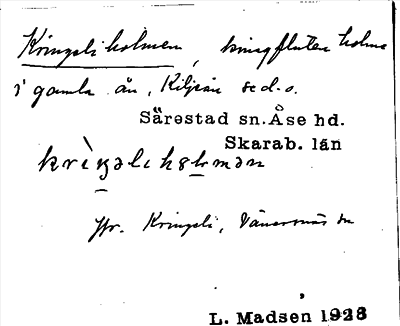 Kringeliholmen, kringfluten holme
i gamla ån, Kiljeån se d.o.
Särestad sn. Åse hd.
Skarab. län
Jfr. Kringeli, Vänersnäs sn
L. Madsen 1926